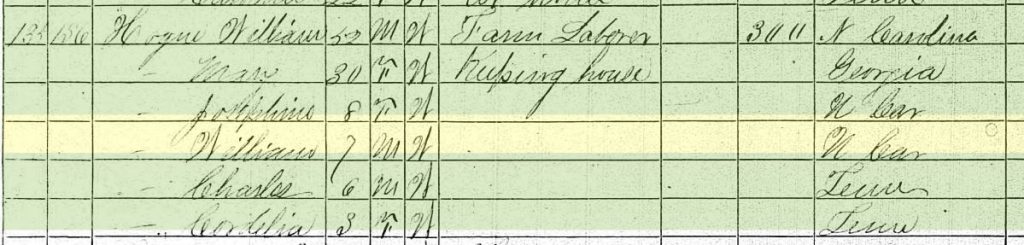 Hogue William 52 M W Farm Laborer 300 N Carolina
— Mary 30 F W Keeping house Georgia
— Josephine 8 F W N Car
— William 7 M W N Car
— Charles 6 M W Tenn
— Cordelia 3 F W Tenn